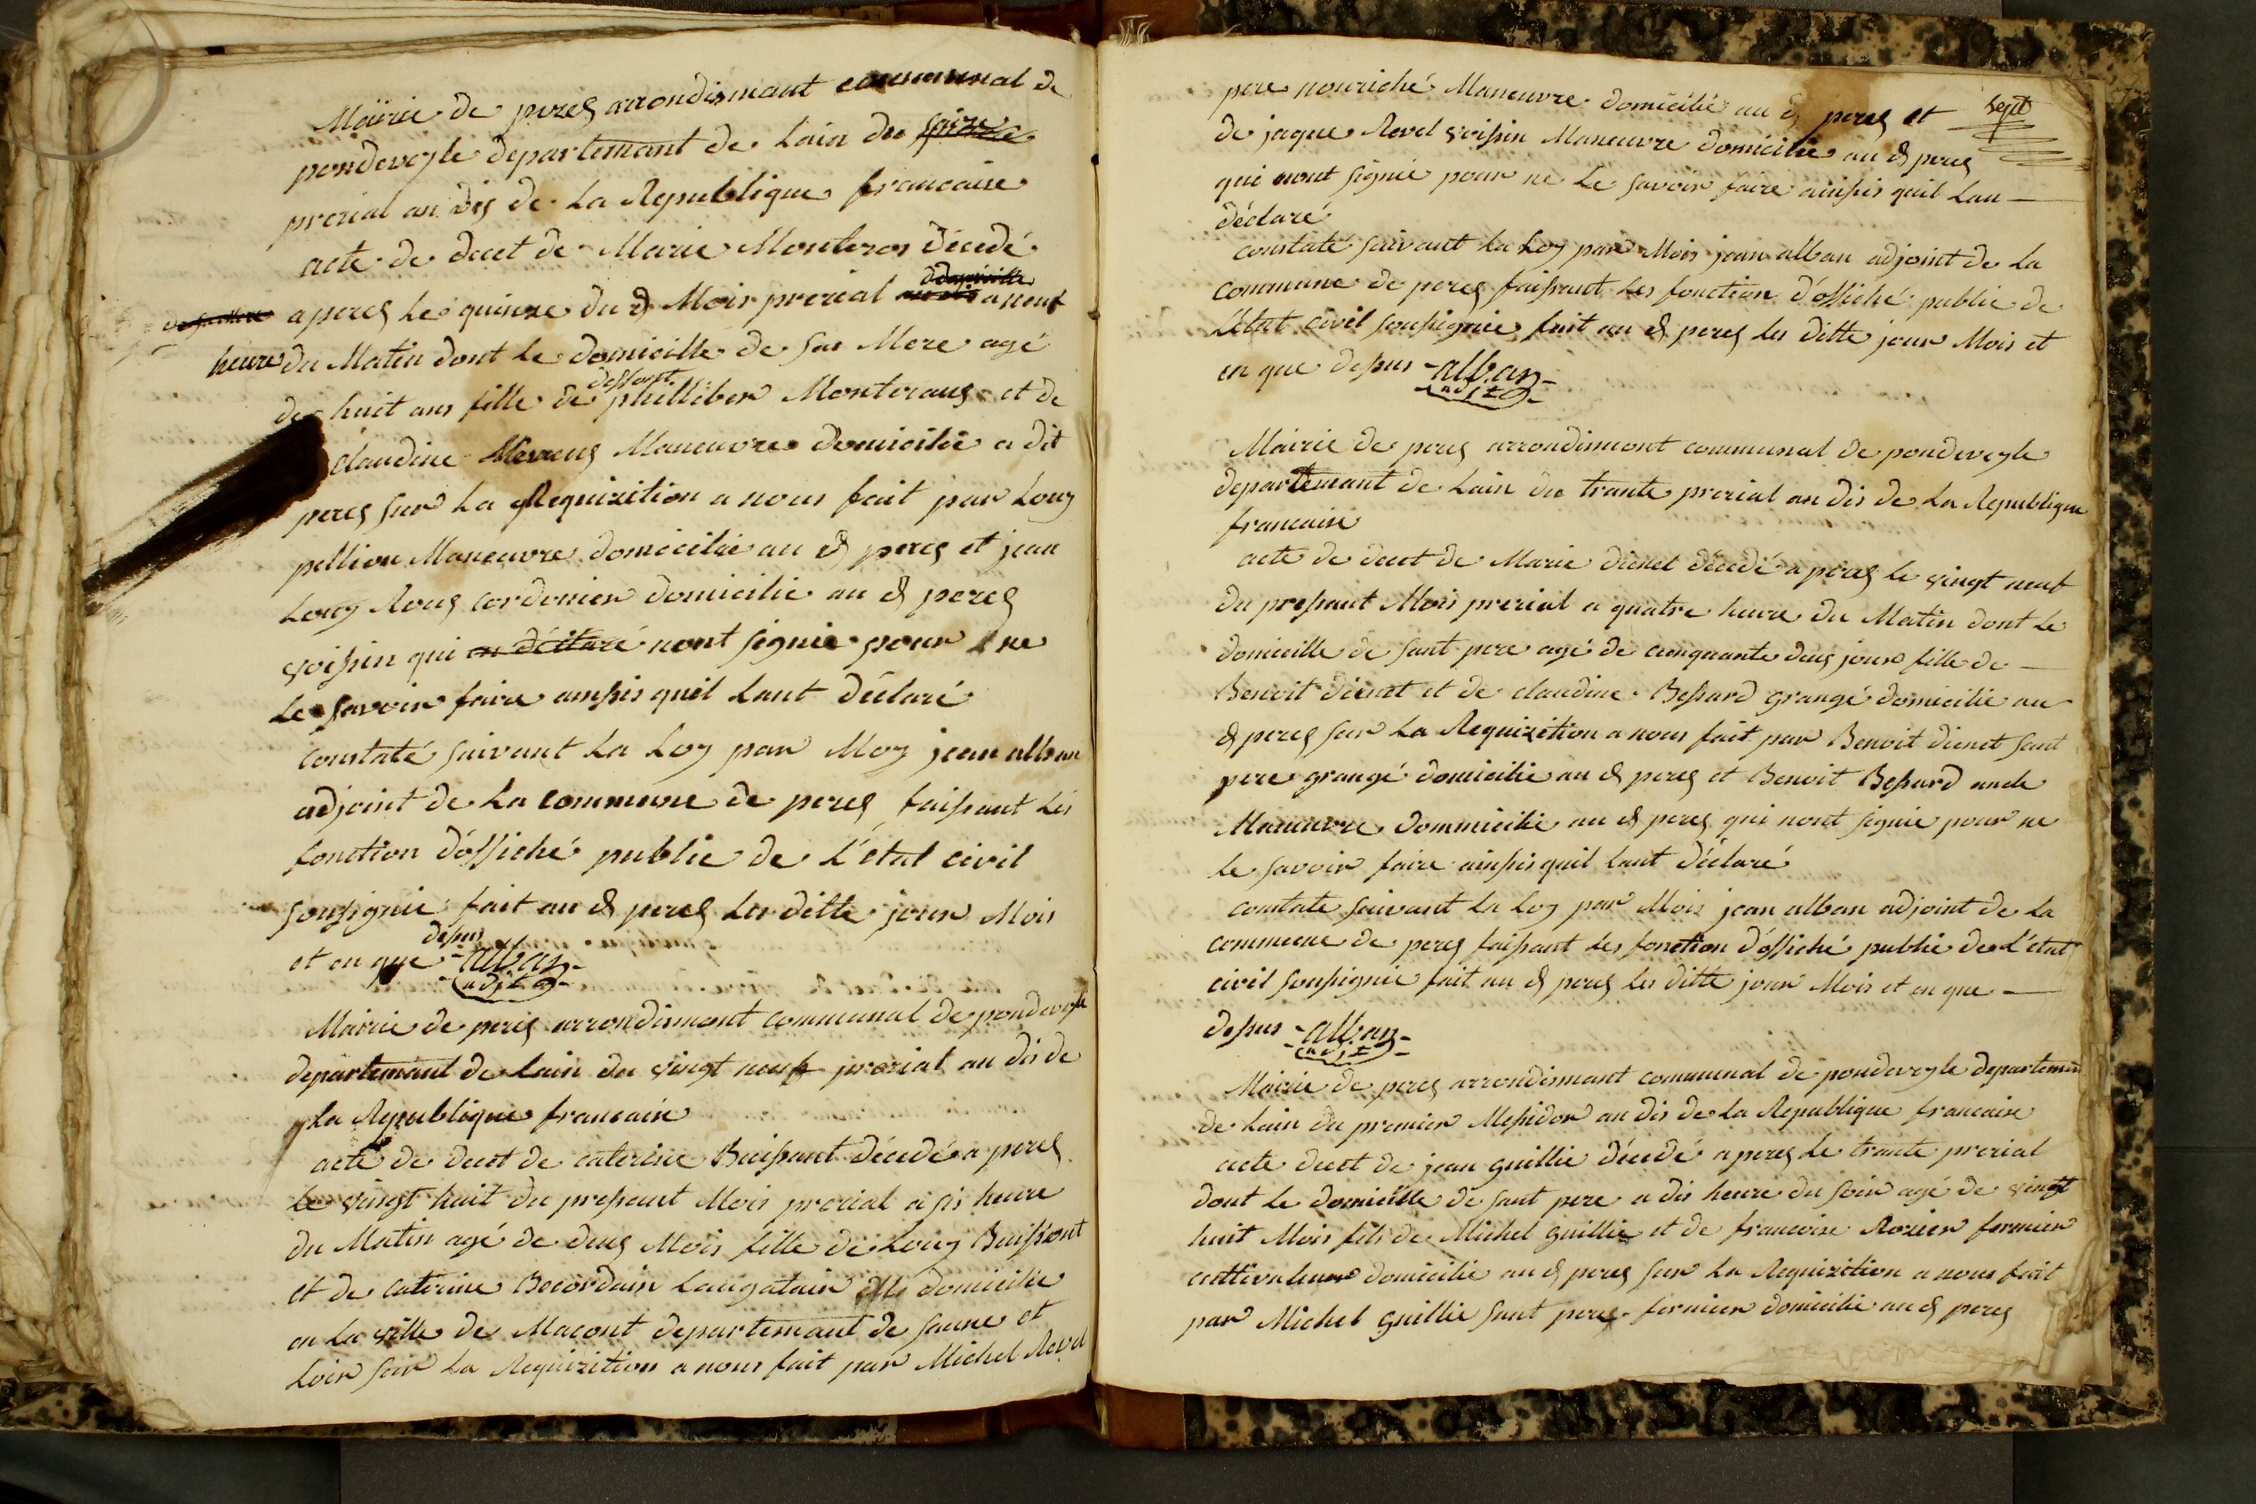 Mairie de perез arrondismant communal de
pondeveyle departemant de Lain du saize
prerial an dis de La Republique francaise
acte de decet de Marie Monteros décedé
a perez le quinze du d Mois prerial a neuf
heure du Matin dont le domicille de sa Mere agé
de huit ans fille de deffunt philliber Monteraux et de
claudine Maneuvre domicilié a dit
perez sur La Requizition a nous fait par Louy
pellion Maneuvre domicilié au d perez et jean
Louy Roux cordonier domicilié au d perez
voissin qui on déclaré nont signié pour ne
le savoir faire ainssis quil lant déclaré
constaté suivant La Loy par Moy jean alban
adjoint de La commune de perez faissant les
fonction d'offiché public de L'état civil
soussignié fait au d perez les ditte jour Mois
et en que dessus alban
adjt
Mairie de perez arrondismant communal de pondeveyle
departemant de Lain du vingt neuf prerial an dis de
La Republique francaise
acte de decet de caterine Buissont décedé a perez
le vingt huit du pressent Mois prerial a sis heure
du Matin agé de deux Mois fille de Louy Buissont
et de caterine domicilié
en La ville de Macont departemant de saune et
Loir sur La Requizition a nous fait par Michel Revel
sept
pere nouriché Maneuvre domicilié au d perez et
de jaque Revel voissin Maneuvre domicilié au d perez
qui nont signié pour ne le savoir faire ainssis quil lan
déclaré
constaté suivant La Loy par Mois jean alban adjoint de La
commune de perez faissant les fonction d'offiché public de
L'état civil soussignié fait au d perez les ditte jour Mois et
en que dessus alban
adjt
Mairie de perez arrondismont communal de pondeveyle
departemant de Lain du trante prerial an dis de La Republique
francaise
acte de decet de Marie dienet décedé a perez le vingt neuf
du pressant Mois prerial a quatre heure du Matin dont le
domicille de sant pere agé de cinquante deux jour fille de
Benoit dienet et de claudine Bessard grangé domicilié au
d perez sur La Requizition a nous fait par Benoit dienet sant
pere grangé domicilié au d perez et Benoit Bessard oncle
Maneuvre dommicilié au d perez qui nont signié pour ne
le savoir faire ainssis quil lant déclaré
constate suivant La Loy par Mois jean alban adjoint de La
commune de perez faissant les fonction d'offiché public de L'état
civil soussignié fait au d perez les ditte jour Mois et en que
dessus alban
adjt
Mairie de perez arrondismant communal de pondeveyle departemen
de Lain du premier Messidor an dis de La Republique francaise
acte decet de jean guillie décedé a perez le trante prerial
dont le domicille de sant pere a dis heure du soir agé de vingt
huit Mois fils de Michel guillie et de francoise Rozier fermier
cultivateur domicilié au d perez sur La Requizition a nous fait
par Michel guillie sant pere fermier domicilié au d perez